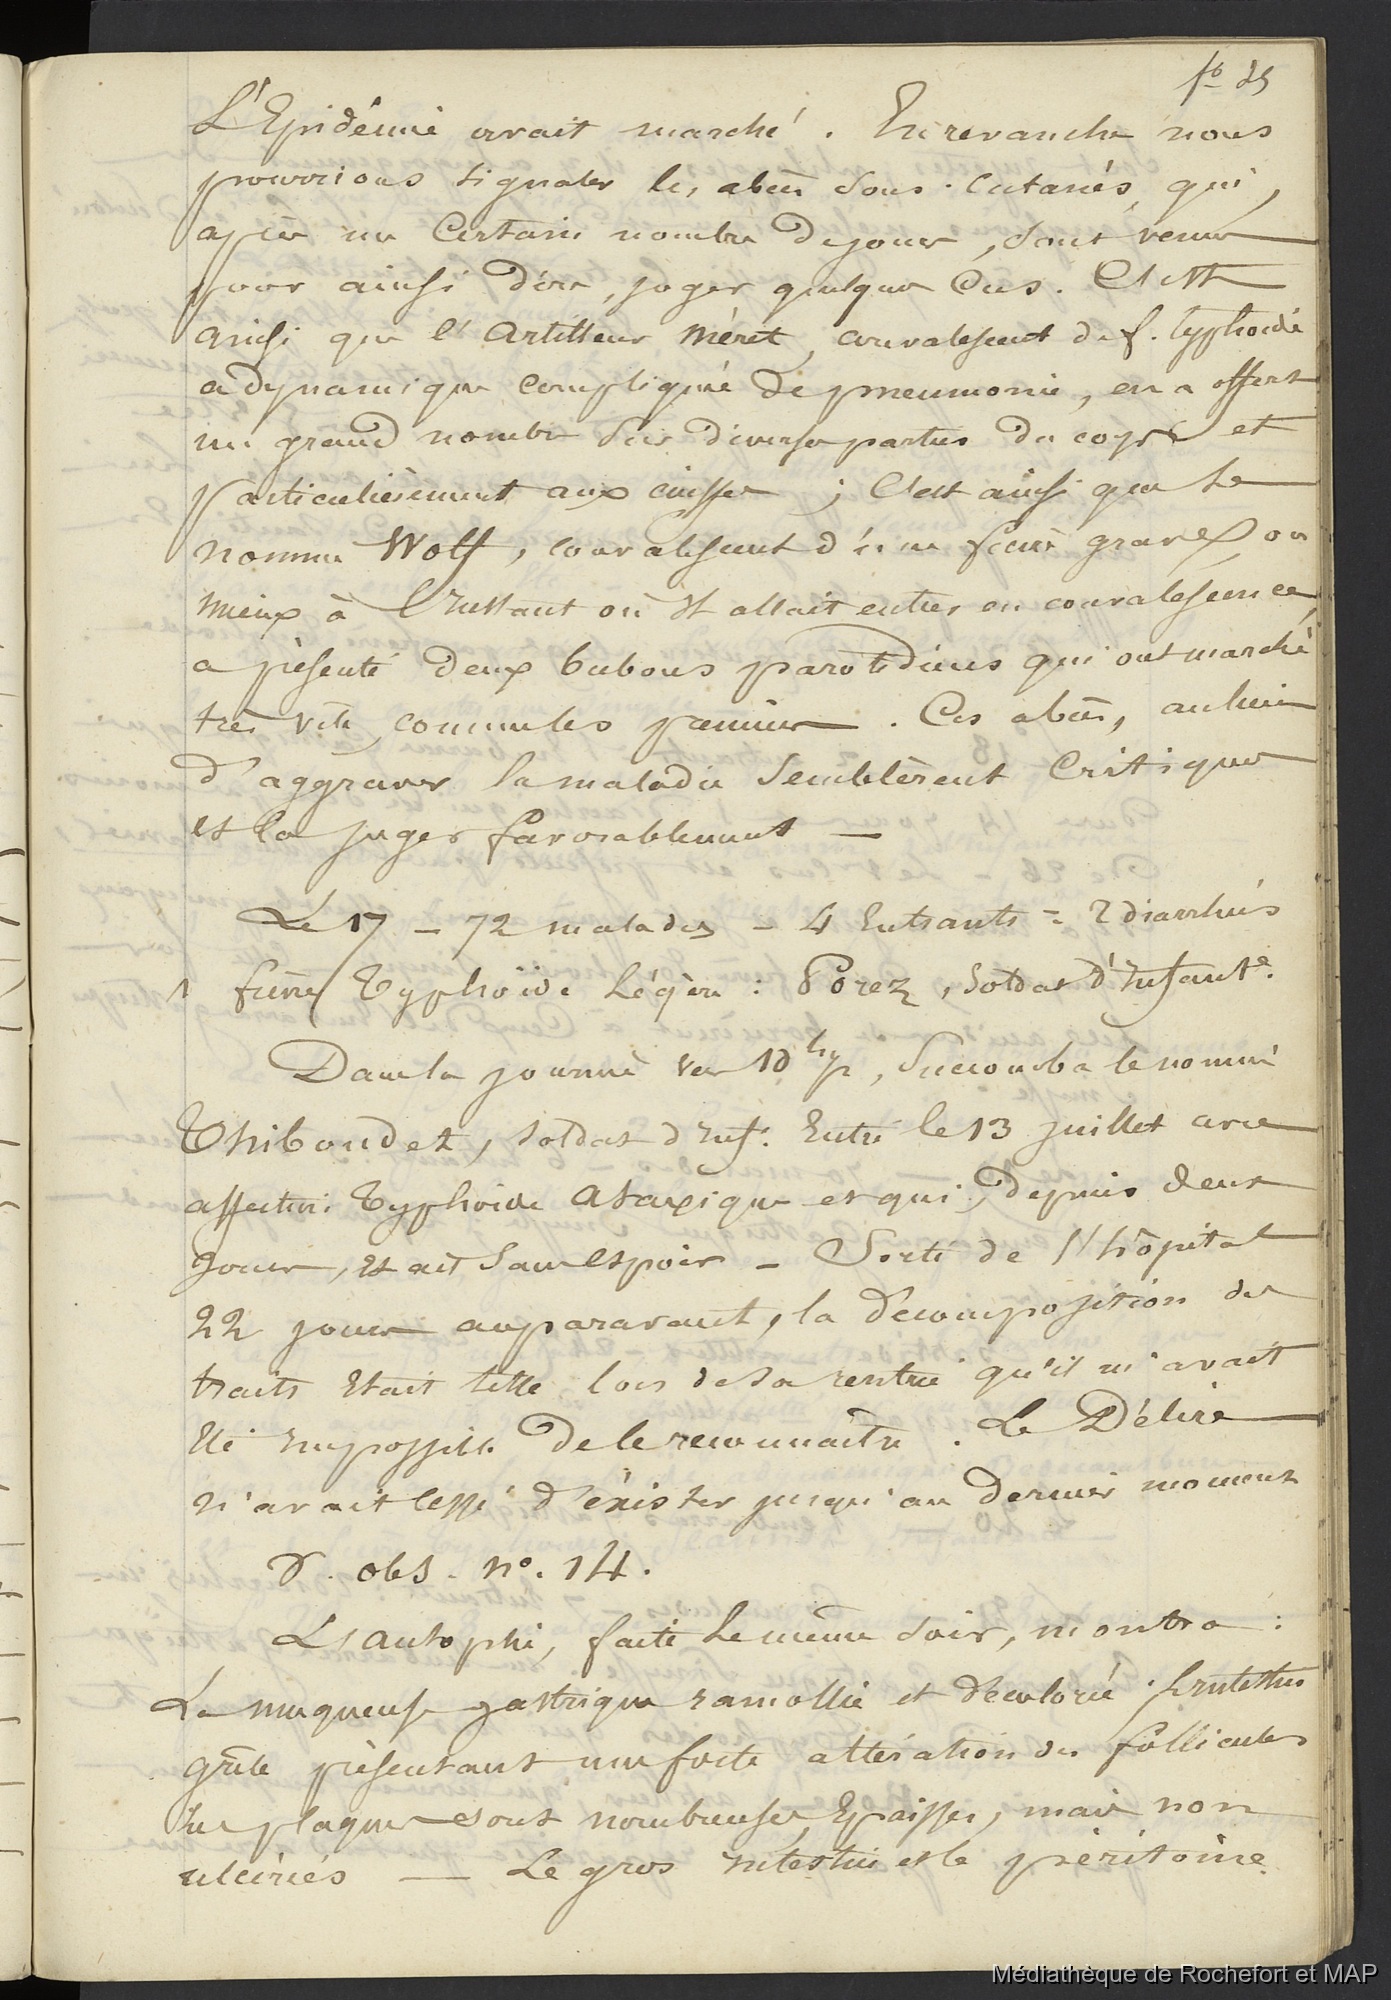 fo 25
L'Epidémie avait marché. En revanche nous
pourrions signaler les abcès sous-cutanés, qui,
après un certain nombre de jours, sont venus
pour ainsi dire, juger quelques cas. C'est
ainsi que l'artilleur Méret, convalescent de f. typhoïde
adynamique compliquée de pneumonie, en a offert
un grand nombre sur diverses parties du corps et
particulièrement aux cuisses ; c'est ainsi que le
nommé Wolf, convalescent d'une fièvre grave, ou
mieux à l'instant où il allait entrer en convalescence,
a présenté deux bubons parotidiens qui ont marché
très vite, comme les premiers. Ces abcès, au lieu
d'aggraver la maladie semblèrent critiques
et la juger favorablement —
Le 17 – 72 malades – 4 Entrants = 2 diarrhées
1 fièvre Typhoïde légère : Porez, soldat d'Infante.
Dans la journée vers 10 h ½, succomba le nommé
Thiboudet, soldat d'Inf. Entré le 13 juillet avec
affection Typhoïde ataxique et qui, depuis deux
jours, était sans espoir – Sorti de l'hôpital
22 jours auparavant, la décomposition des
traits était telle, lors de sa rentrée qu'il m'avait
été impossible de le reconnaître. Le Délire
n'avait cessé d'éxister jusqu'au dernier moment
V. obs. n°. 14.
L'autophie, faite le même soir, montra :
La muqueuse gastrique ramollie et décolorée ; l'intestin
grêle présentant une forte altération des follicules
les plaques sont nombreuses, Epaisses, mais non
ulcérées — Le gros intestin et le péritoine
Médiathèque de Rochefort et MAP